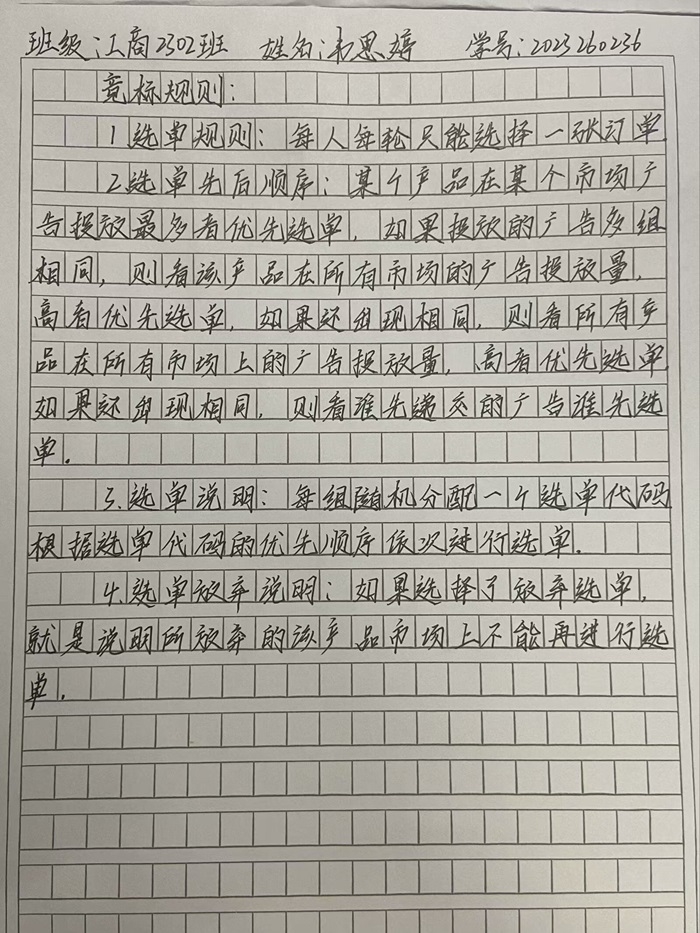 班级:工商2302班 姓名:韦思婷 学号:2023260236
竟标规则:
1.选单规则:每人每轮只能选择一张订单.
2.选单先后顺序:某个产品在某个市场广
告投放最多者优先选单,如果投放的广告多组
相同,则看该产品在所有市场的广告投放量,
高者优先选单,如果还出现相同,则看所有产
品在所有市场上的广告投放量,高者优先选单,
如果还出现相同,则看谁先递交的广告谁先选
单.
3.选单说明:每组随机分配一个选单代码
根据选单代码的优先顺序依次进行选单.
4.选单放弃说明:如果选择了放弃选单,
就是说明所放弃的该产品市场上不能再进行选
单.